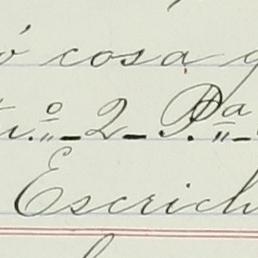 ó cosa
ti.º 2 P.ª
Escrich